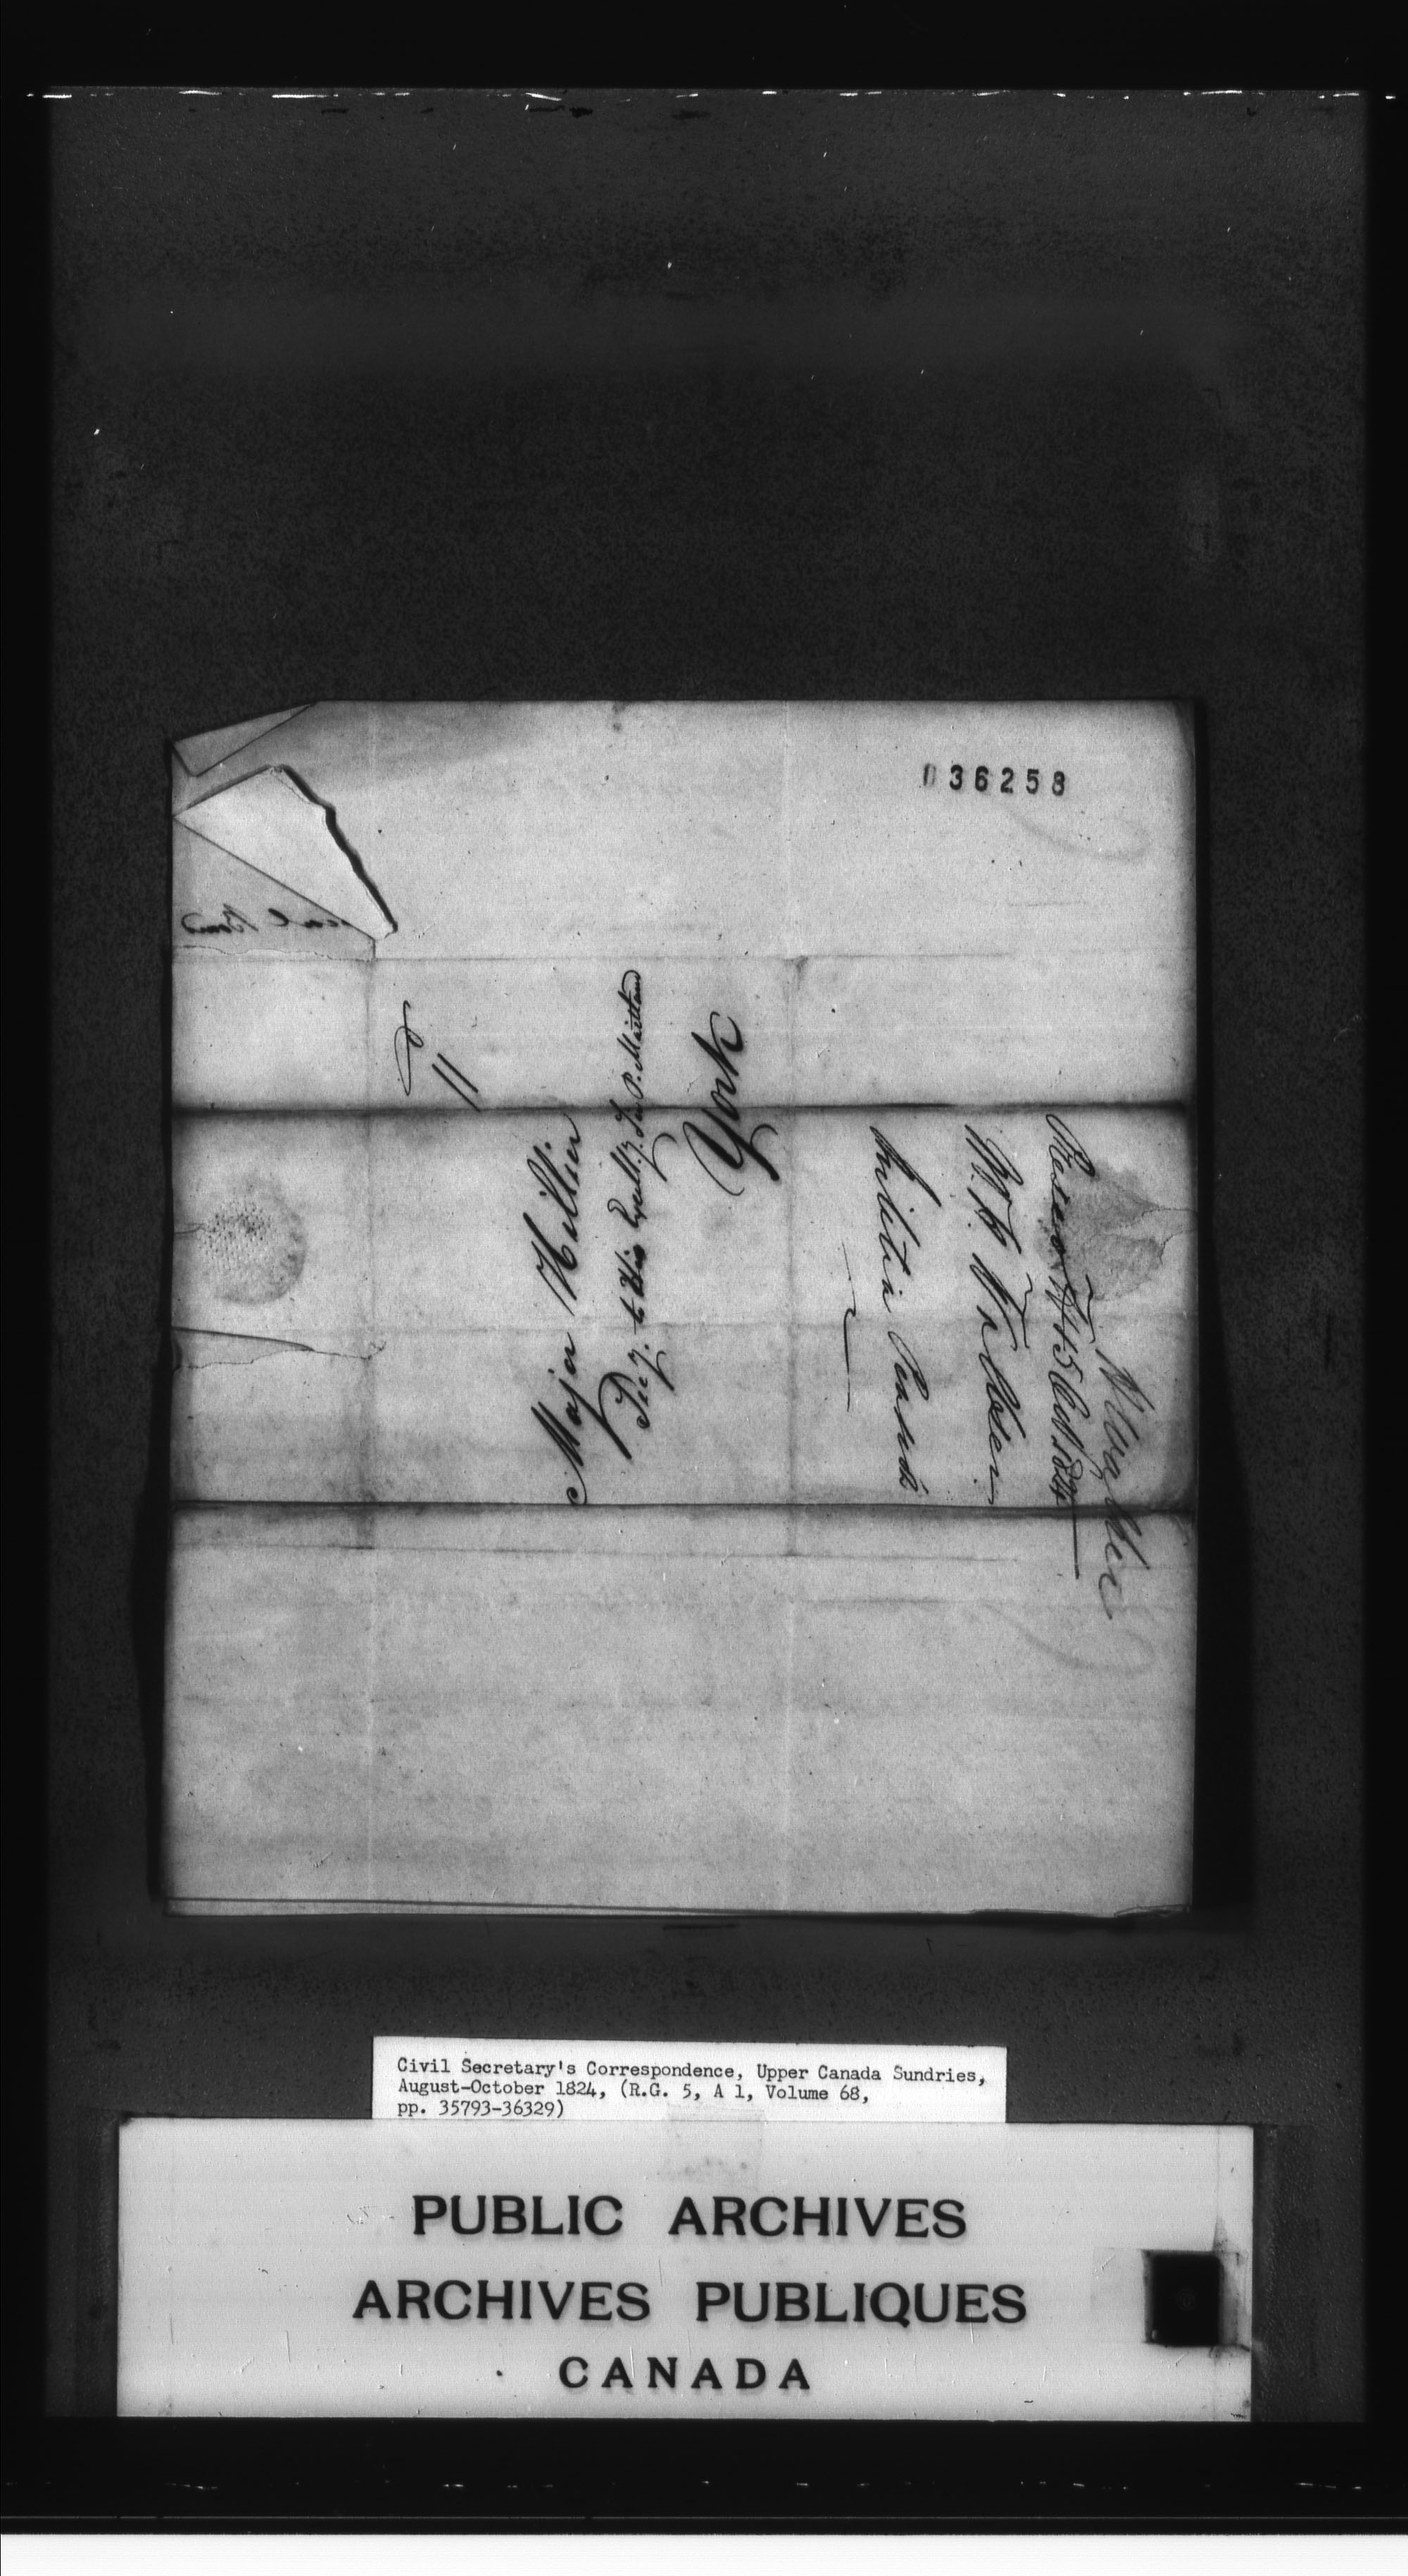 036258
Major Hillier
Sec'y. to His Excell'y. Sir P. Maitland
York
11
Received 15 Oct 1824
Militia
Civil Secretary's Correspondence, Upper Canada Sundries,
August-October 1824, (R.G. 5, A 1, Volume 68,
pp. 35793-36329)
PUBLIC ARCHIVES
ARCHIVES PUBLIQUES
CANADA